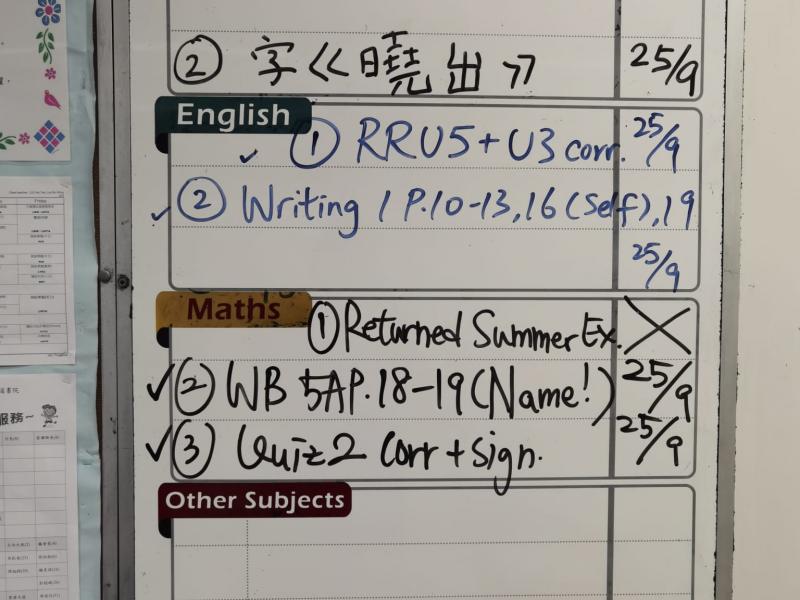 ② 字<<曉出>> 25/9
English
① RRU5+U3 corr. 25/9
② Writing 1 P.10-13,16(Self),19
25/9
Maths
① Returned Summer Ex. X
② WB 5A P.18-19(Name!) 25/9
③ Quiz 2 Corr + sign. 25/9
Other Subjects
服務~